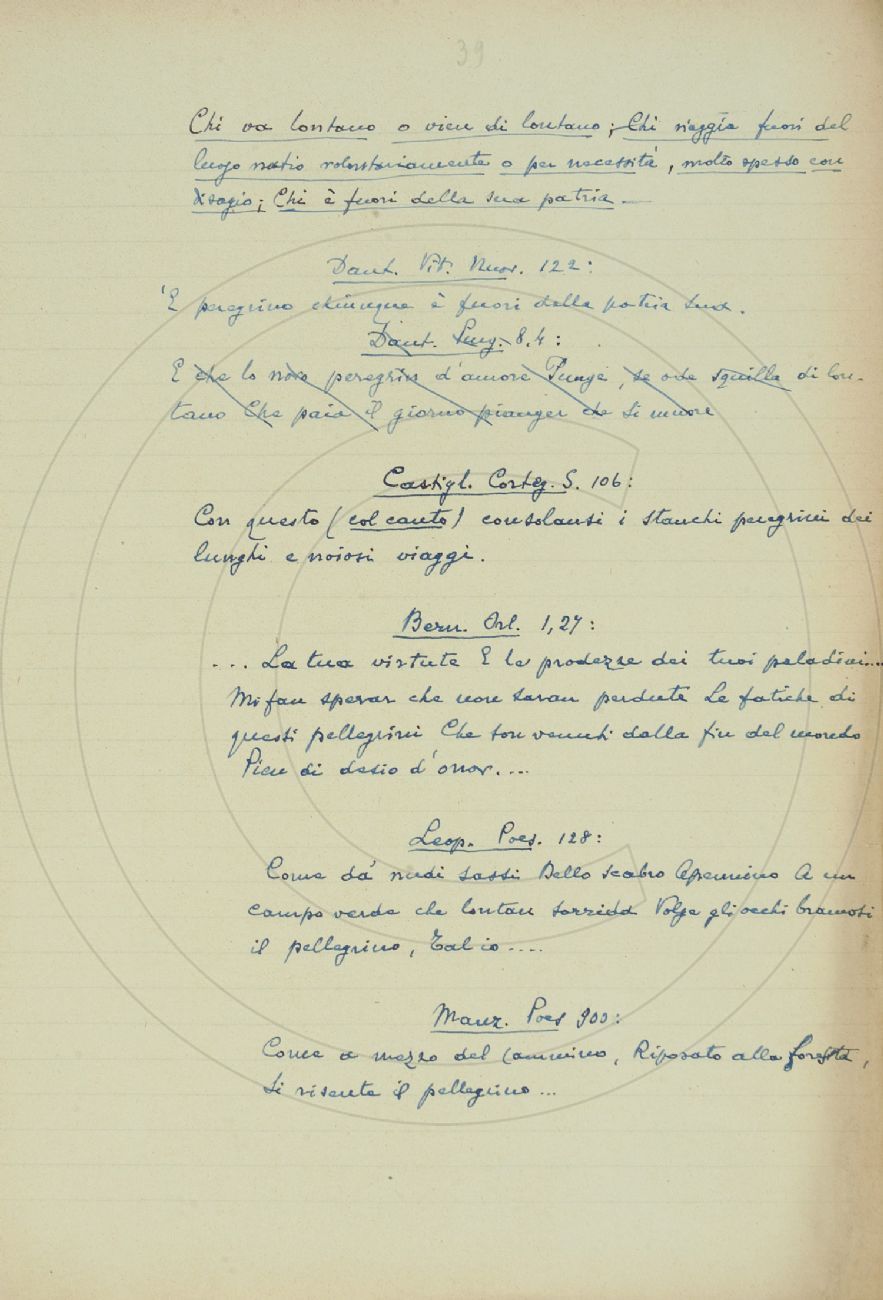 39
Chi va lontano o vien di lontano; Chi viaggia fuori del
luogo natio volontariamente o per necessità, molto spesso con
disagio; Chi è fuori della sua patria. —
Dant. Vit. Nuov. 122:
'E peregrino chiunque è fuori della patria sua.
Dant. Purg. 8.4:
E che lo novo peregrin d'amore Punge, se ode squilla di lon-
tano Che paia il giorno pianger che si muore
Castigl. Corteg. S. 106:
Con questo (col canto) consolansi i stanchi peregrini dei
lunghi e noiosi viaggi.
Bern. Orl. 1,27:
... La tua virtute E le prodezze dei tuoi paladini....
Mi fan sperar che non saran perdute Le fatiche di
questi pellegrini Che son venuti dalla fin del mondo
Pien di desio d'onor....
Leop. Poes. 128:
Come da' nudi sassi Dello scabro Apennino A un
campo verde che lontan sorrida Volge gli occhi bramosi
il pellegrino, Tal io ....
Manz. Poes 900:
Come a mezzo del cammino, Riposato alla foresta,
Si risente il pellegrino ...